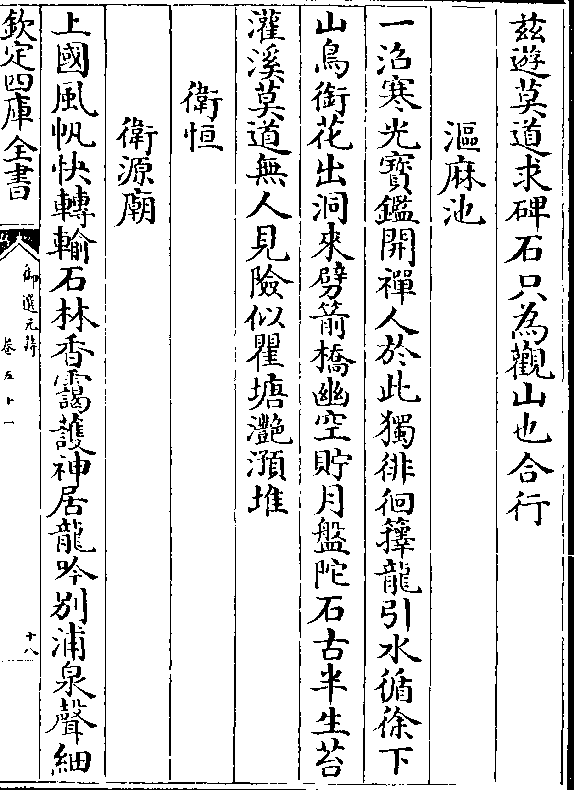 茲遊莫道求碑石只為觀山也合行
漚麻池
一泓寒光寶鑑開禪人於此獨徘徊籜龍引水循徐下
山鳥銜花出洞來劈箭橋幽空貯月盤陀石古半生苔
灌溪莫道無人見險似瞿塘灔澦堆
衛恒
衛源廟
上國風帆快轉輸石林香靄護神居龍吟别浦泉聲細
欽定四庫全書
御選元詩
卷五十一
十八